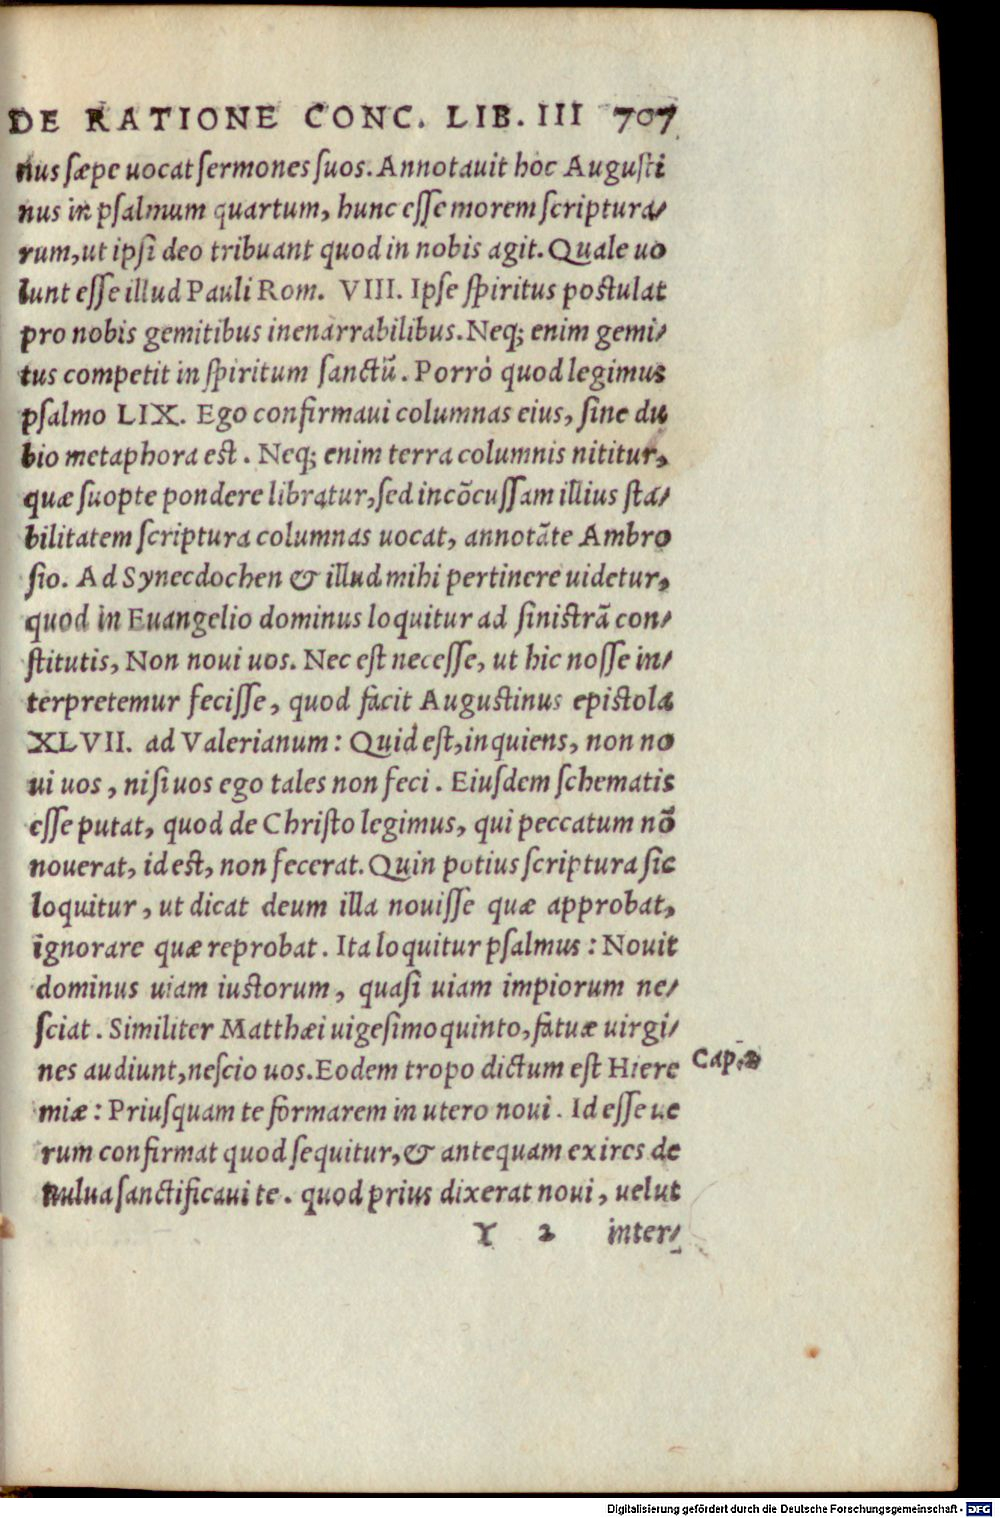 DE RATIONE CONC. LIB. III 707
nus sæpe uocat sermones suos. Annotauit hoc Augusti
nus in psalmum quartum, hunc esse morem scriptura/
rum, ut ipsi deo tribuant quod in nobis agit. Quale uo
lunt esse illud Pauli Rom. VIII. Ipse spiritus postulat
pro nobis gemitibus inenarrabilibus. Neq; enim gemi/
tus competit in spiritum sanctū. Porrò quod legimus
psalmo LIX. Ego confirmaui columnas eius, sine du
bio metaphora est. Neq; enim terra columnis nititur,
quæ suopte pondere libratur, sed incōcussam illius sta/
bilitatem scriptura columnas uocat, annotāte Ambro
sio. Ad Synecdochen & illud mihi pertinere uidetur,
quod in Euangelio dominus loquitur ad sinistrā con/
stitutis, Non noui uos. Nec est necesse, ut hic nosse in/
terpretemur fecisse, quod facit Augustinus epistola
XLVII. ad Valerianum: Quid est, inquiens, non no
ui uos, nisi uos ego tales non feci. Eiusdem schematis
esse putat, quod de Christo legimus, qui peccatum nō
nouerat, id est, non fecerat. Quin potius scriptura sic
loquitur, ut dicat deum illa nouisse quæ approbat,
ignorare quæ reprobat. Ita loquitur psalmus: Nouit
dominus uiam iustorum, quasi uiam impiorum ne/
sciat. Similiter Matthæi uigesimoquinto, fatuæ uirgi/
nes audiunt, nescio uos. Eodem tropo dictum est Hiere
Cap. 2
miæ: Priusquam te formarem in utero noui. Id esse ue
rum confirmat quod sequitur, & antequam exires de
uulua sanctificaui te. quod prius dixerat noui, uelut
Y 2 inter/
Digitalisierung gefördert durch die Deutsche Forschungsgemeinschaft - DFG